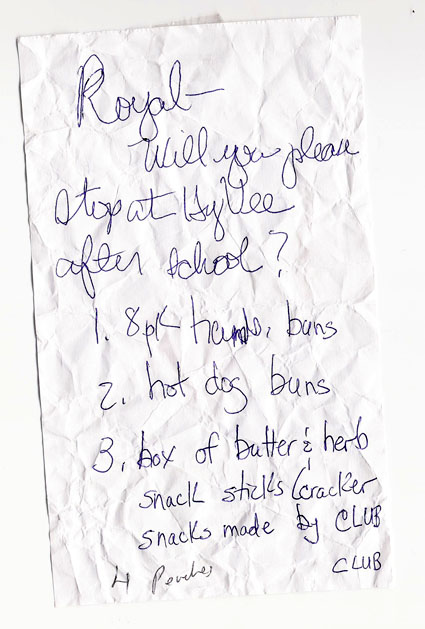 Royal—
Will you please
stop at HyVee
after school?
1. 8pk hamb. buns
2. hot dog buns
3. box of butter & herb
snack sticks (cracker
snacks made by CLUB
CLUB
4 Peaches